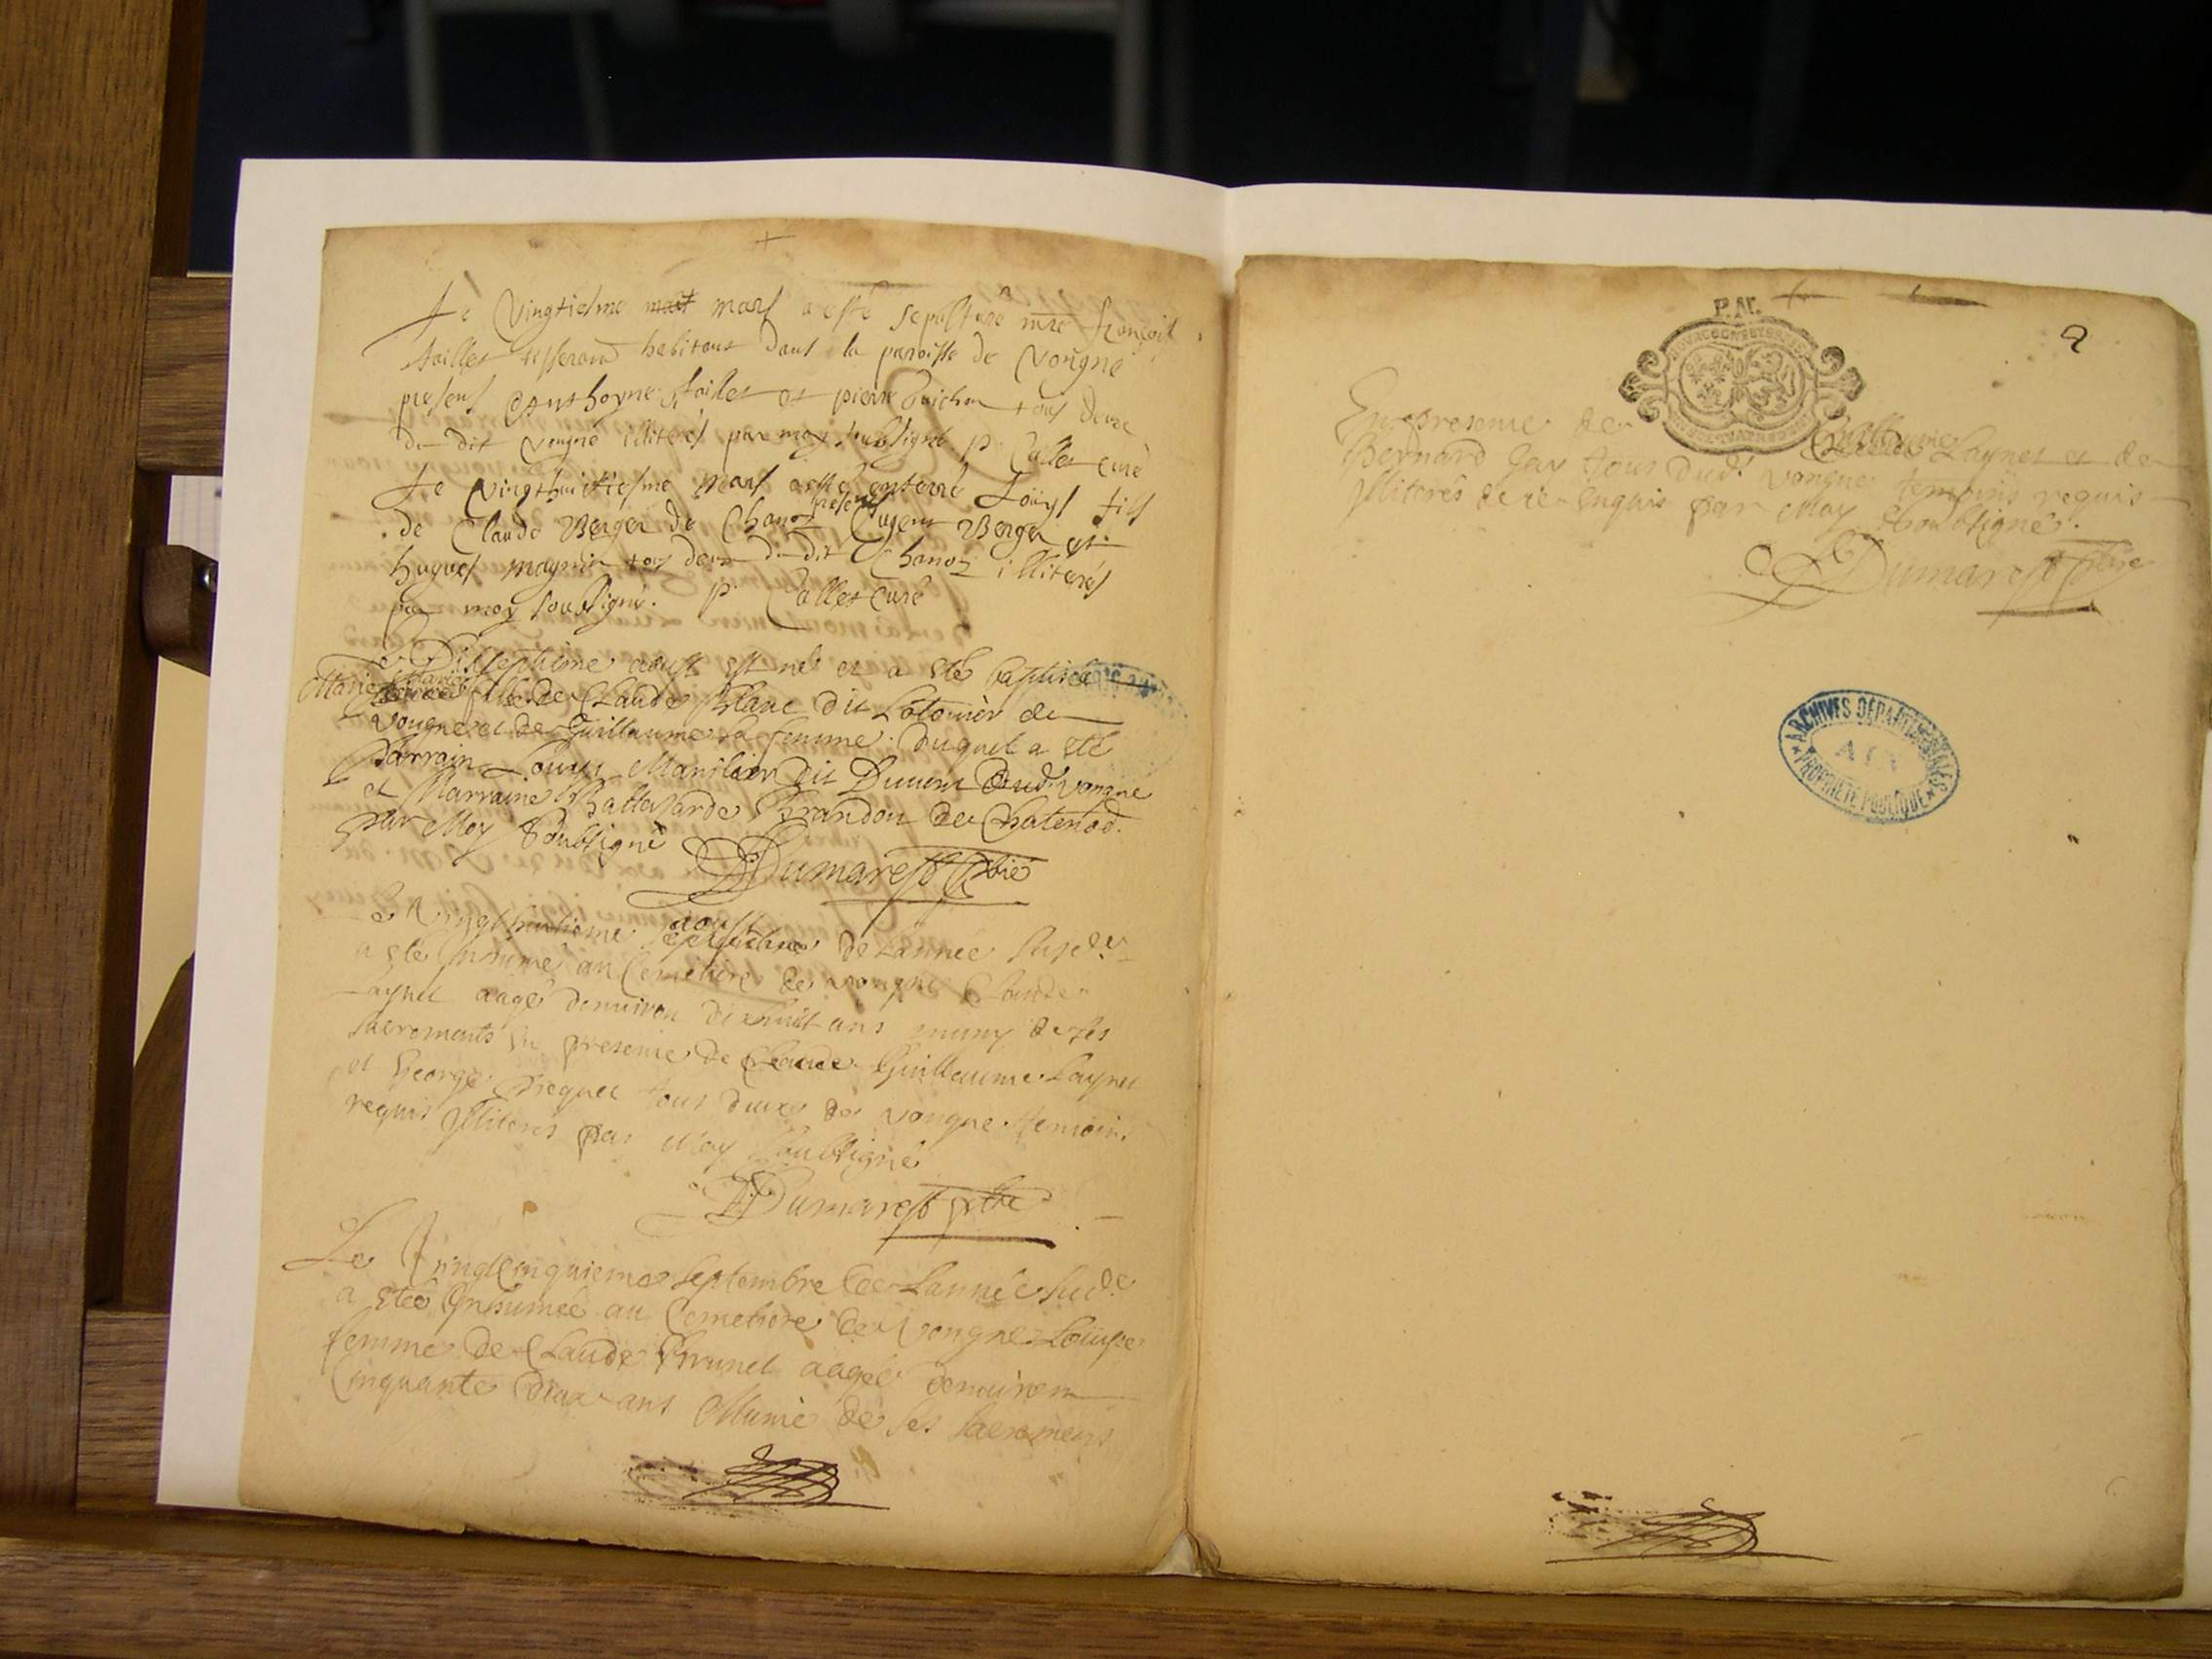 Le Vingtiesme mart mars a esté sepulturé mre françois
taillet tisserand habitant dans la paroisse de Vongne
presens Anthoyne taillet et pierre Guichon tous deux
du dit vongne illiterés par moy soubsigné P. Callet curé
Le Vingthuitiesme mars a esté enterré Louys fils
de Claude Berger de Chanoz presens Eugene Berger et
hugues magnin tous deux du dit Chanoz illiterés
par moy soubsigné. P. Callet curé
Le Dixseptieme aoust est née et a eté baptisée
Marie Marie fille de Claude Blanc dit Lotonier de
vongne et de Guillauma sa femme. duquel a eté
parrain Louys Manilier dit Duvern dud. vongne
et Marraine Baltasarde Brandon de Chatenod.
par Moy soubsigné
Dumarest pbre
Le Vingthuitieme aoust de Lannée susd.e
a eté Inhumé au Cemetiere de vongne Claude
Laynet aagé denuiron dixhuit ans muny de ses
sacrements En presence de Claude Guillaume Laynet
et George Pieques tous deux de vongne temoins
requis Illiterés par Moy soubsigné
Dumarest pbre
Le Vingtcinquieme septembre de Lannée sud.e
a eteé Inhumée au Cemetiere de vongne Louyse
femme de Claude Brunet aageé denuiron
Cinquante deux ans Munie de ses sacremens
P.Nr.
2
En presence de Guillaume Laynet et de
Bernard Gay tous dud. vongne temoins requis
Illiterés de ce Enquis par Moy soubsigné.
Dumarest pbre
ARCHIVES DÉPARTEMENTALES
AIN
PROPRIÉTÉ PUBLIQUE